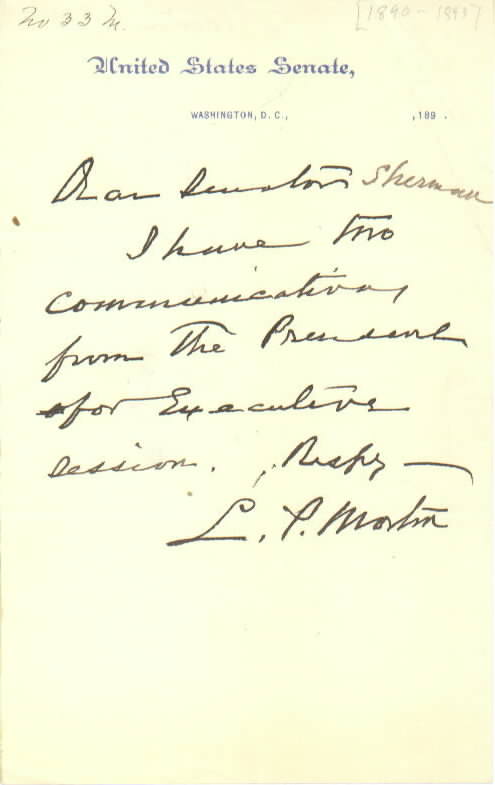 No 33 M.
[1890-1893]
United States Senate,
WASHINGTON, D. C., ,189 .
Dear Senator Sherman
I have two
communications
from the President
for Executive
session. Respy —
L. P. Morton